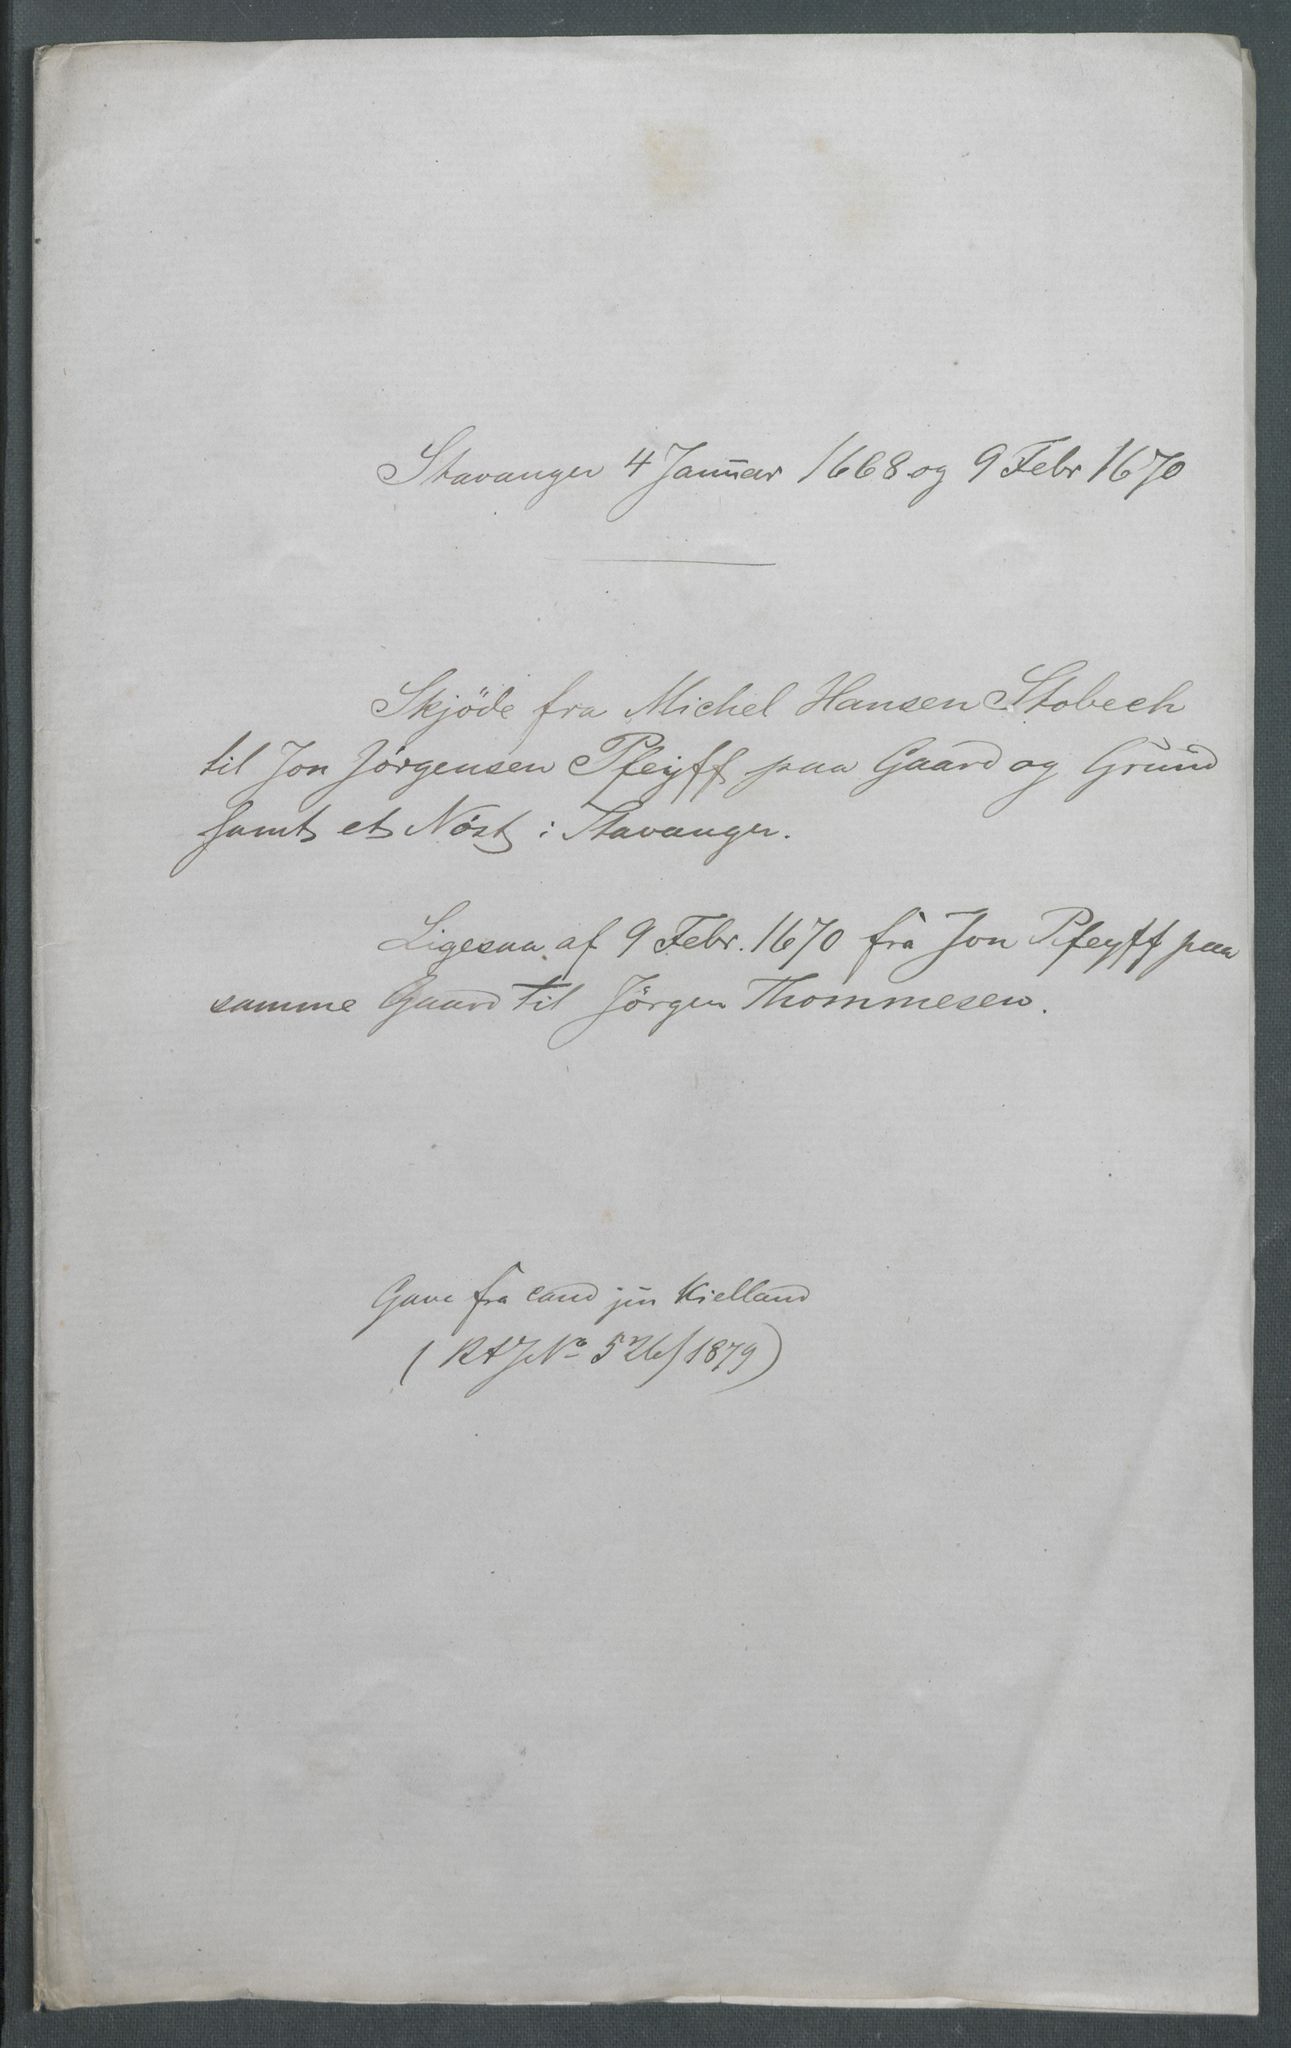 Stavanger 4 Januar 1668 og 9 Febr 1670
Skjöde fra Michel Hansen Stobech
til Jon Jörgensen Pfeyff paa Gaard og Grund
samt et Nöst i Stavanger.
Ligesaa af 9 Febr. 1670 fra Jon Pfeyff paa
samme Gaard til Jörgen Thommesen.
Gave fra cand jur Kielland
(RAJNo 526/1879)